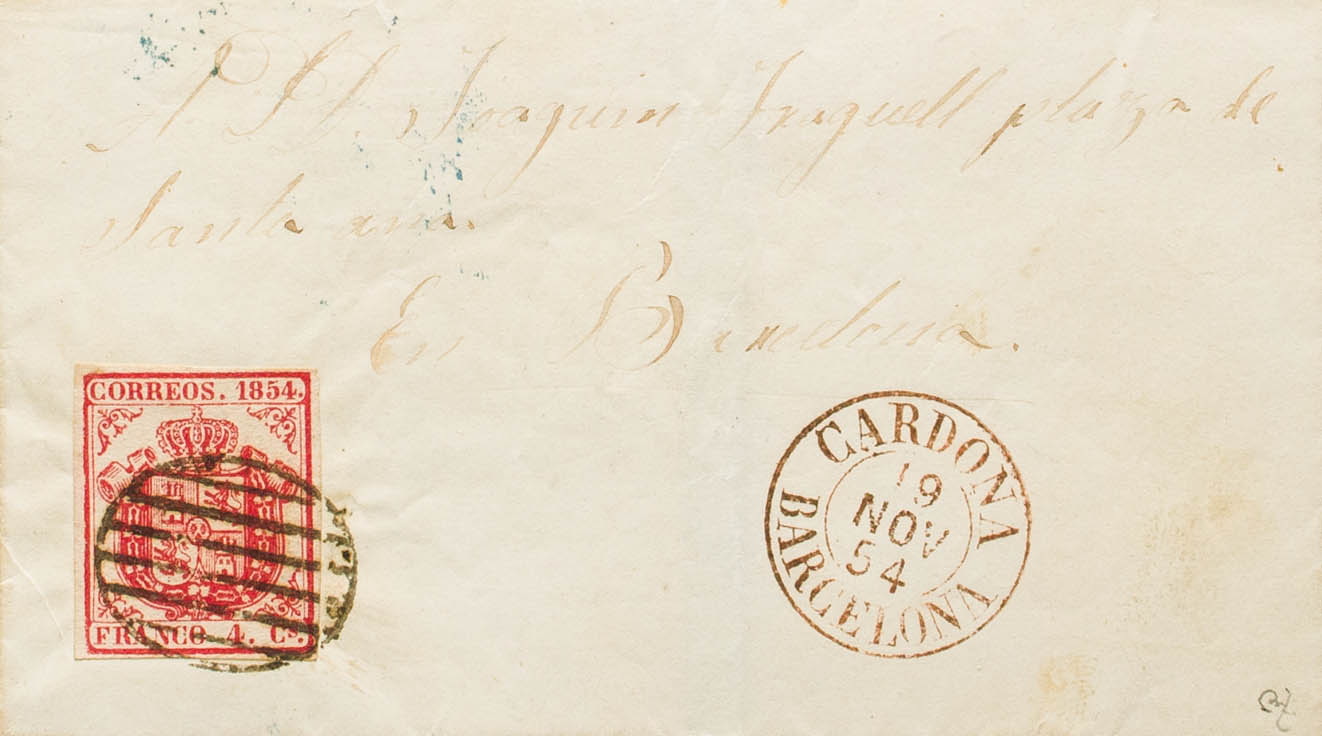 A D. D. Joaquim Fraguell plaza de
Santa ana.
En Barcelona.
CORREOS. 1854.
FRANCO 4. Cs.
CARDONA
19
NOV
54
BARCELONA